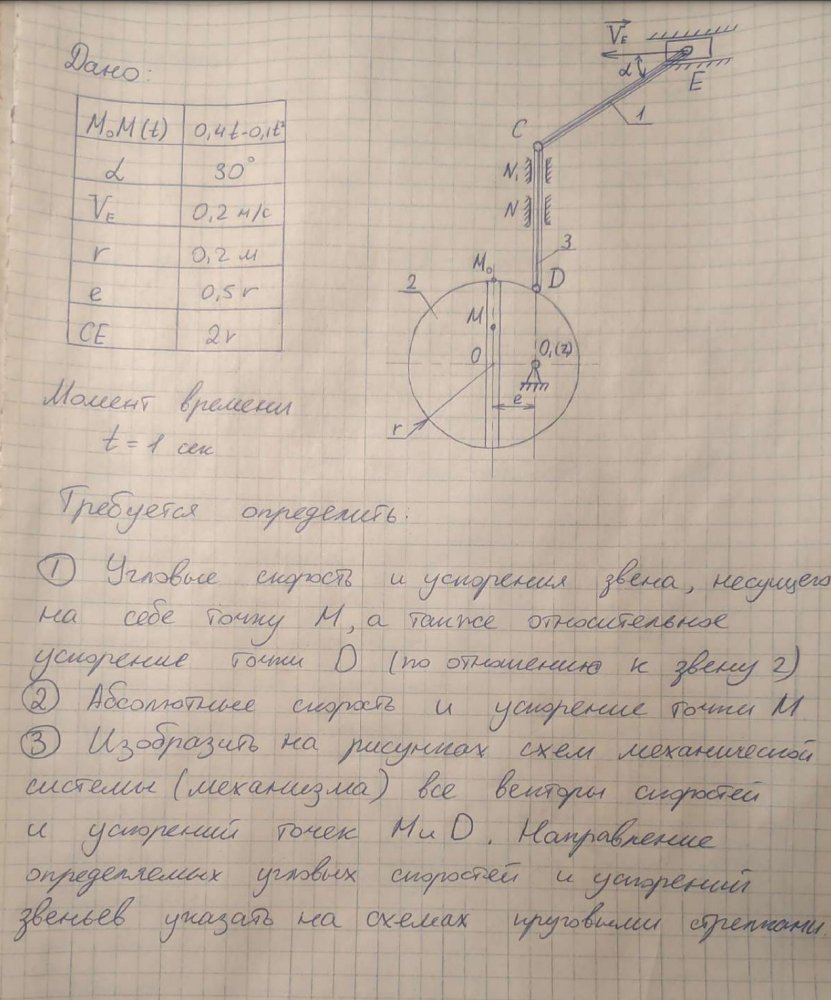 Дано:
M₀M(t) 0,4t-0,1t²
α 30°
V_E 0,2 м/с
r 0,2 м
e 0,5 r
CE 2r
Момент времени
t = 1 сек
V_E
α
E
1
C
N₁
N
3
M₀
D
2
M
O
O₁(z)
e
r
Требуется определить:
① Угловые скорость и ускорения звена, несущего
на себе точку M, а также относительное
ускорение точки D (по отношению к звену 2)
② Абсолютные скорость и ускорение точки M
③ Изобразить на рисунках схем механической
системы (механизма) все векторы скоростей
и ускорений точек M и D. Направление
определяемых угловых скоростей и ускорений
звеньев указать на схемах круговыми стрелками.